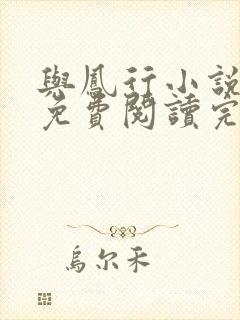 與鳳行小說
免費閱讀完
烏尔禾